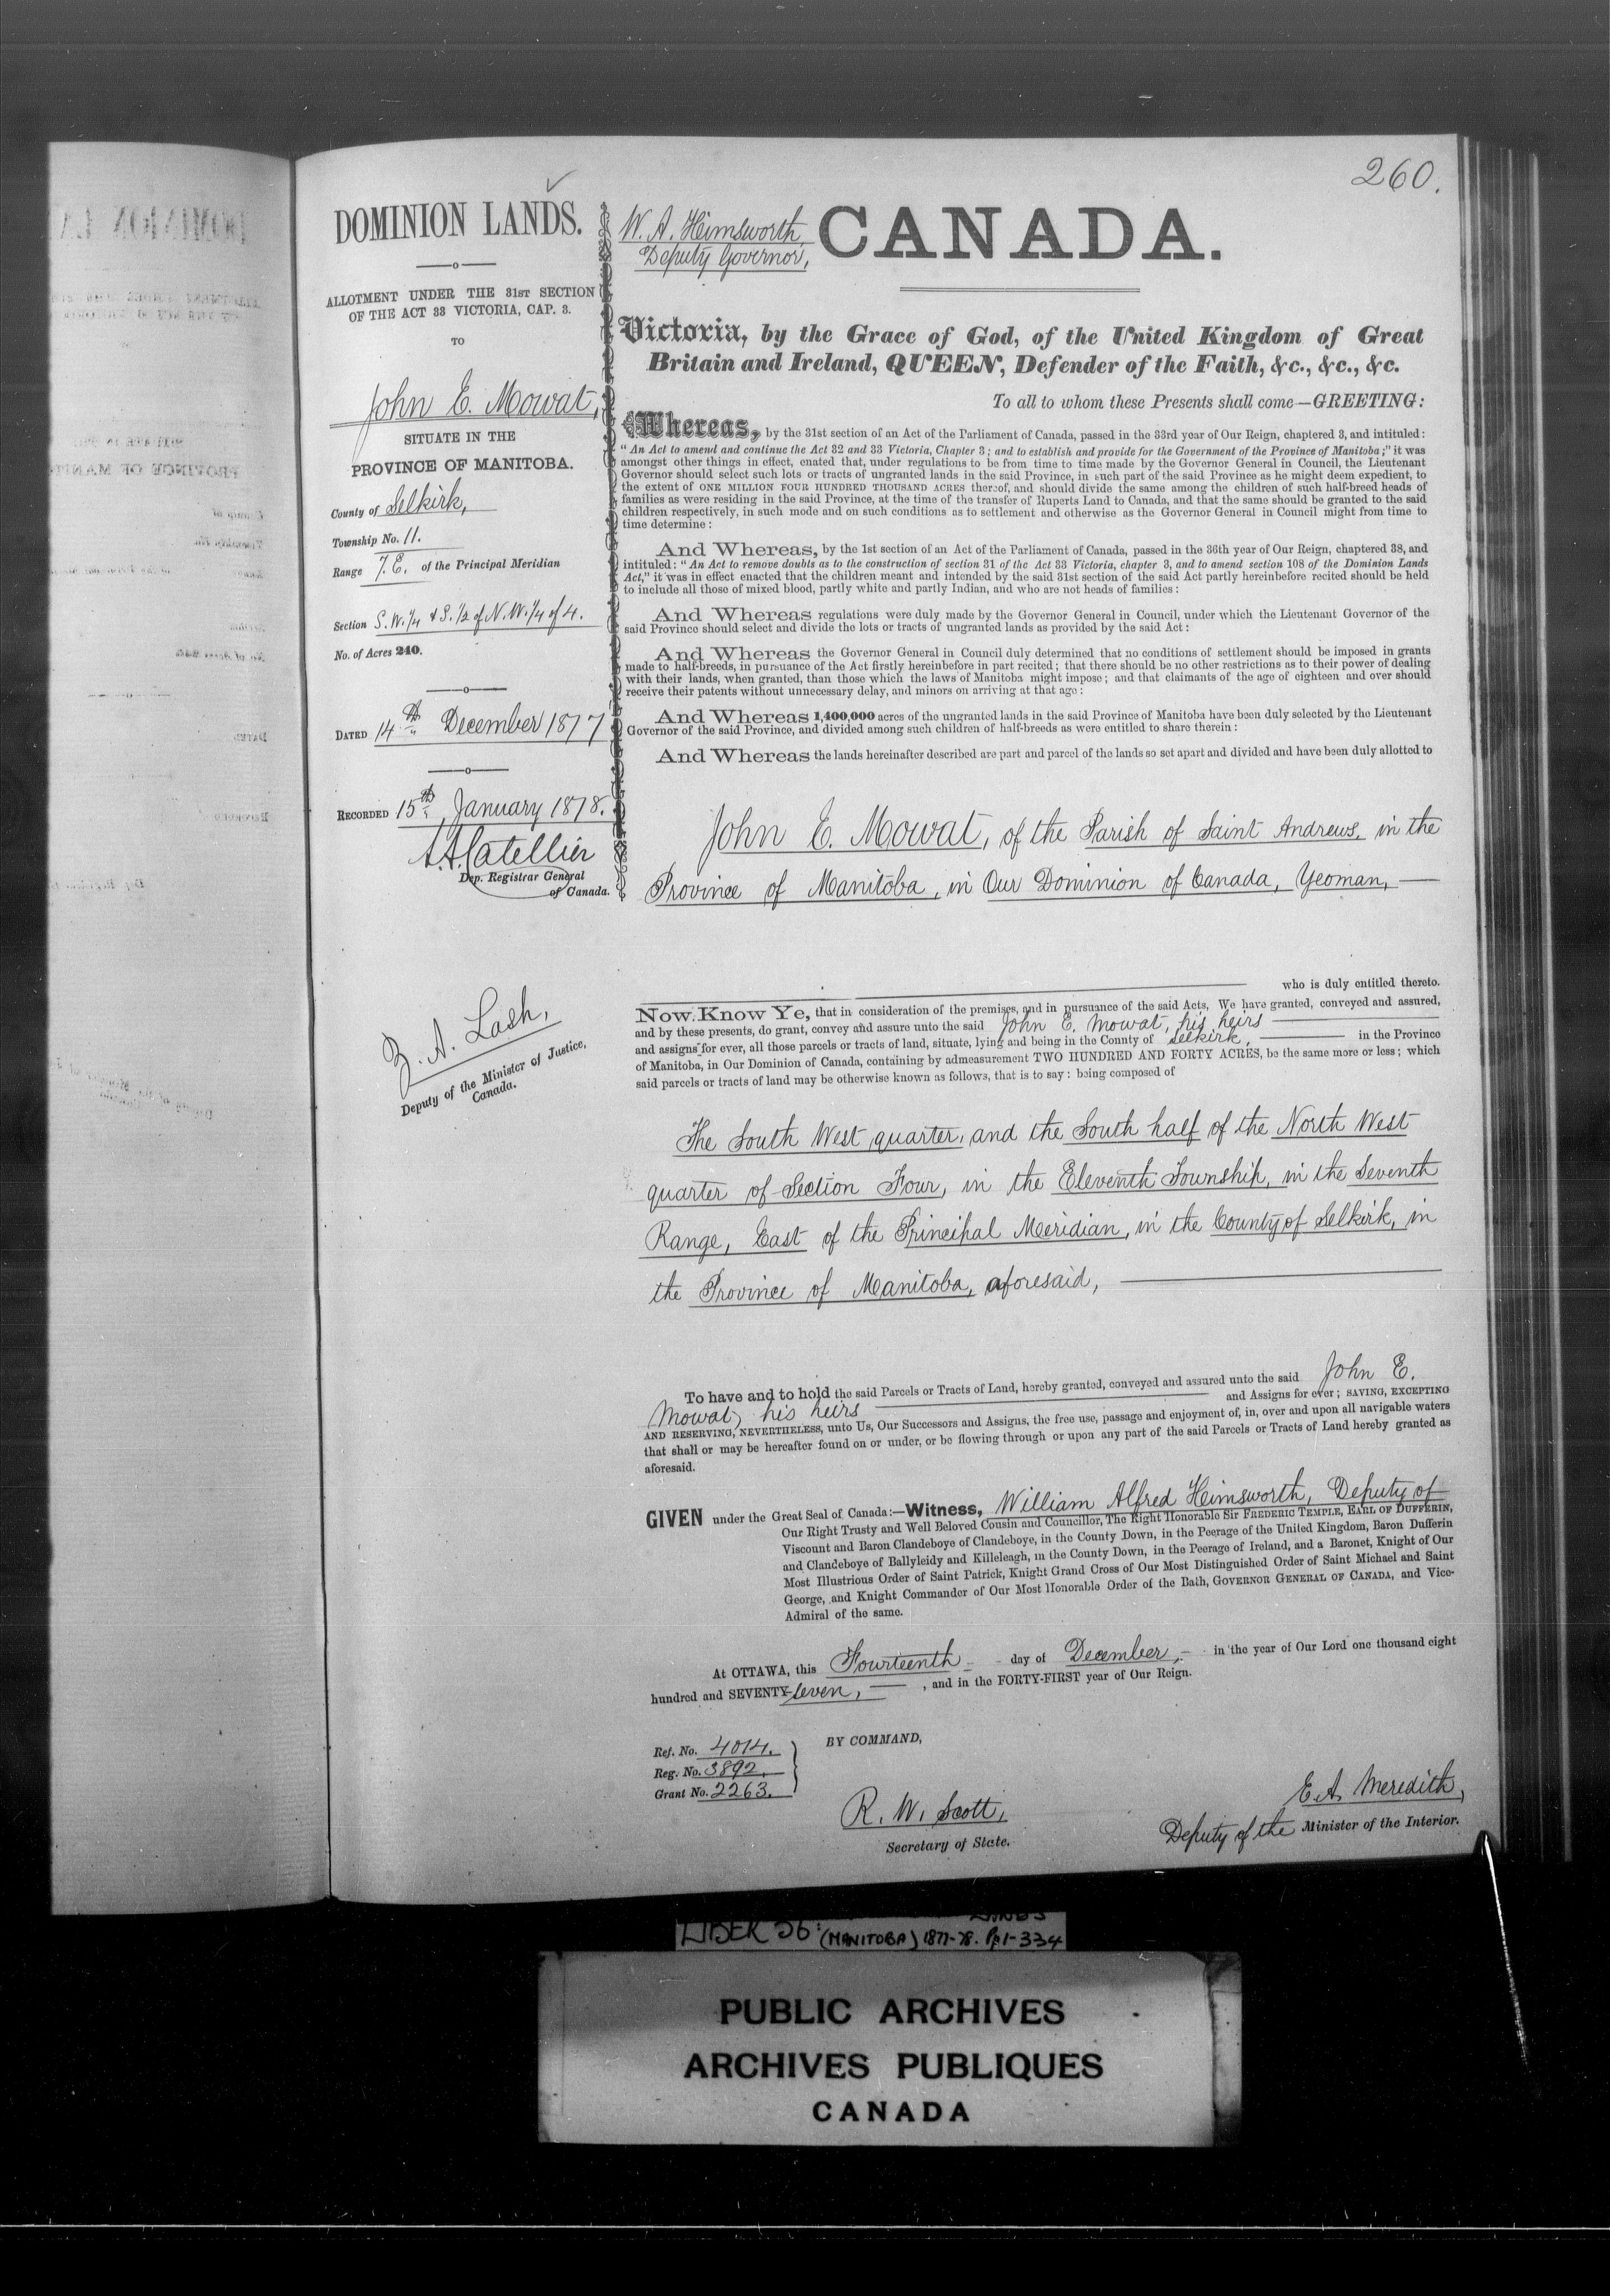 260.
DOMINION LANDS.
ALLOTMENT UNDER THE 31ST SECTION
OF THE ACT 33 VICTORIA, CAP. 3.
TO
John E. Mowat,
SITUATE IN THE
PROVINCE OF MANITOBA.
County of Selkirk,
Township No. 11.
Range 7. E. of the Principal Meridian
Section S. W. 1/4 & S. 1/2 of N. W. 1/4 of 4.
No. of Acres 240.
DATED 14th December 1877
RECORDED 15th January 1878.
Dep. Registrar General
of Canada.
Z. A. Lash,
Deputy of the Minister of Justice,
Canada.
W. A. Himsworth,
Deputy Governor,
CANADA.
Victoria, by the Grace of God, of the United Kingdom of Great
Britain and Ireland, QUEEN, Defender of the Faith, &c., &c., &c.
To all to whom these Presents shall come—GREETING:
Whereas, by the 31st section of an Act of the Parliament of Canada, passed in the 33rd year of Our Reign, chaptered 3, and intituled:
"An Act to amend and continue the Act 32 and 33 Victoria, Chapter 3; and to establish and provide for the Government of the Province of Manitoba;" it was
amongst other things in effect, enated that, under regulations to be from time to time made by the Governor General in Council, the Lieutenant
Governor should select such lots or tracts of ungranted lands in the said Province, in such part of the said Province as he might deem expedient, to
the extent of ONE MILLION FOUR HUNDRED THOUSAND ACRES thereof, and should divide the same among the children of such half-breed heads of
families as were residing in the said Province, at the time of the transfer of Ruperts Land to Canada, and that the same should be granted to the said
children respectively, in such mode and on such conditions as to settlement and otherwise as the Governor General in Council might from time to
time determine:
And Whereas, by the 1st section of an Act of the Parliament of Canada, passed in the 36th year of Our Reign, chaptered 38, and
intituled: "An Act to remove doubts as to the construction of section 31 of the Act 33 Victoria, chapter 3, and to amend section 108 of the Dominion Lands
Act," it was in effect enacted that the children meant and intended by the said 31st section of the said Act partly hereinbefore recited should be held
to include all those of mixed blood, partly white and partly Indian, and who are not heads of families:
And Whereas regulations were duly made by the Governor General in Council, under which the Lieutenant Governor of the
said Province should select and divide the lots or tracts of ungranted lands as provided by the said Act:
And Whereas the Governor General in Council duly determined that no conditions of settlement should be imposed in grants
made to half-breeds, in pursuance of the Act firstly hereinbefore in part recited; that there should be no other restrictions as to their power of dealing
with their lands, when granted, than those which the laws of Manitoba might impose; and that claimants of the age of eighteen and over should
receive their patents without unnecessary delay, and minors on arriving at that age:
And Whereas 1,400,000 acres of the ungranted lands in the said Province of Manitoba have been duly selected by the Lieutenant
Governor of the said Province, and divided among such children of half-breeds as were entitled to share therein:
And Whereas the lands hereinafter described are part and parcel of the lands so set apart and divided and have been duly allotted to
John E. Mowat, of the Parish of Saint Andrews, in the
Province of Manitoba, in Our Dominion of Canada, Yeoman,
who is duly entitled thereto.
Now Know Ye, that in consideration of the premises, and in pursuance of the said Acts, We have granted, conveyed and assured,
and by these presents, do grant, convey and assure unto the said John E. Mowat, his heirs
and assigns for ever, all those parcels or tracts of land, situate, lying and being in the County of Selkirk, in the Province
of Manitoba, in Our Dominion of Canada, containing by admeasurement TWO HUNDRED AND FORTY ACRES, be the same more or less; which
said parcels or tracts of land may be otherwise known as follows, that is to say: being composed of
The South West quarter, and the South half of the North West
quarter of Section Four, in the Eleventh Township, in the Seventh
Range, East of the Principal Meridian, in the County of Selkirk, in
the Province of Manitoba, aforesaid,
To have and to hold the said Parcels or Tracts of Land, hereby granted, conveyed and assured unto the said John E.
Mowat, his heirs and Assigns for ever; SAVING, EXCEPTING
AND RESERVING, NEVERTHELESS, unto Us, Our Successors and Assigns, the free use, passage and enjoyment of, in, over and upon all navigable waters
that shall or may be hereafter found on or under, or be flowing through or upon any part of the said Parcels or Tracts of Land hereby granted as
aforesaid.
GIVEN under the Great Seal of Canada:—Witness, William Alfred Himsworth, Deputy of
Our Right Trusty and Well Beloved Cousin and Councillor, The Right Honorable Sir FREDERIC TEMPLE, EARL OF DUFFERIN,
Viscount and Baron Clandeboye of Clandeboye, in the County Down, in the Peerage of the United Kingdom, Baron Dufferin
and Clandeboye of Ballyleidy and Killeleagh, in the County Down, in the Peerage of Ireland, and a Baronet, Knight of Our
Most Illustrious Order of Saint Patrick, Knight Grand Cross of Our Most Distinguished Order of Saint Michael and Saint
George, and Knight Commander of Our Most Honorable Order of the Bath, GOVERNOR GENERAL OF CANADA, and Vice-
Admiral of the same.
At OTTAWA, this Fourteenth day of December, in the year of Our Lord one thousand eight
hundred and SEVENTY-seven, , and in the FORTY-FIRST year of Our Reign.
Ref. No. 4014.
Reg. No. 3892.
Grant No. 2263.
BY COMMAND,
R. W. Scott,
Secretary of State.
E. A. Meredith,
Deputy of the Minister of the Interior.
LIBER 56: LANDS
(MANITOBA) 1877-78. Pp. 1-334
PUBLIC ARCHIVES
ARCHIVES PUBLIQUES
CANADA